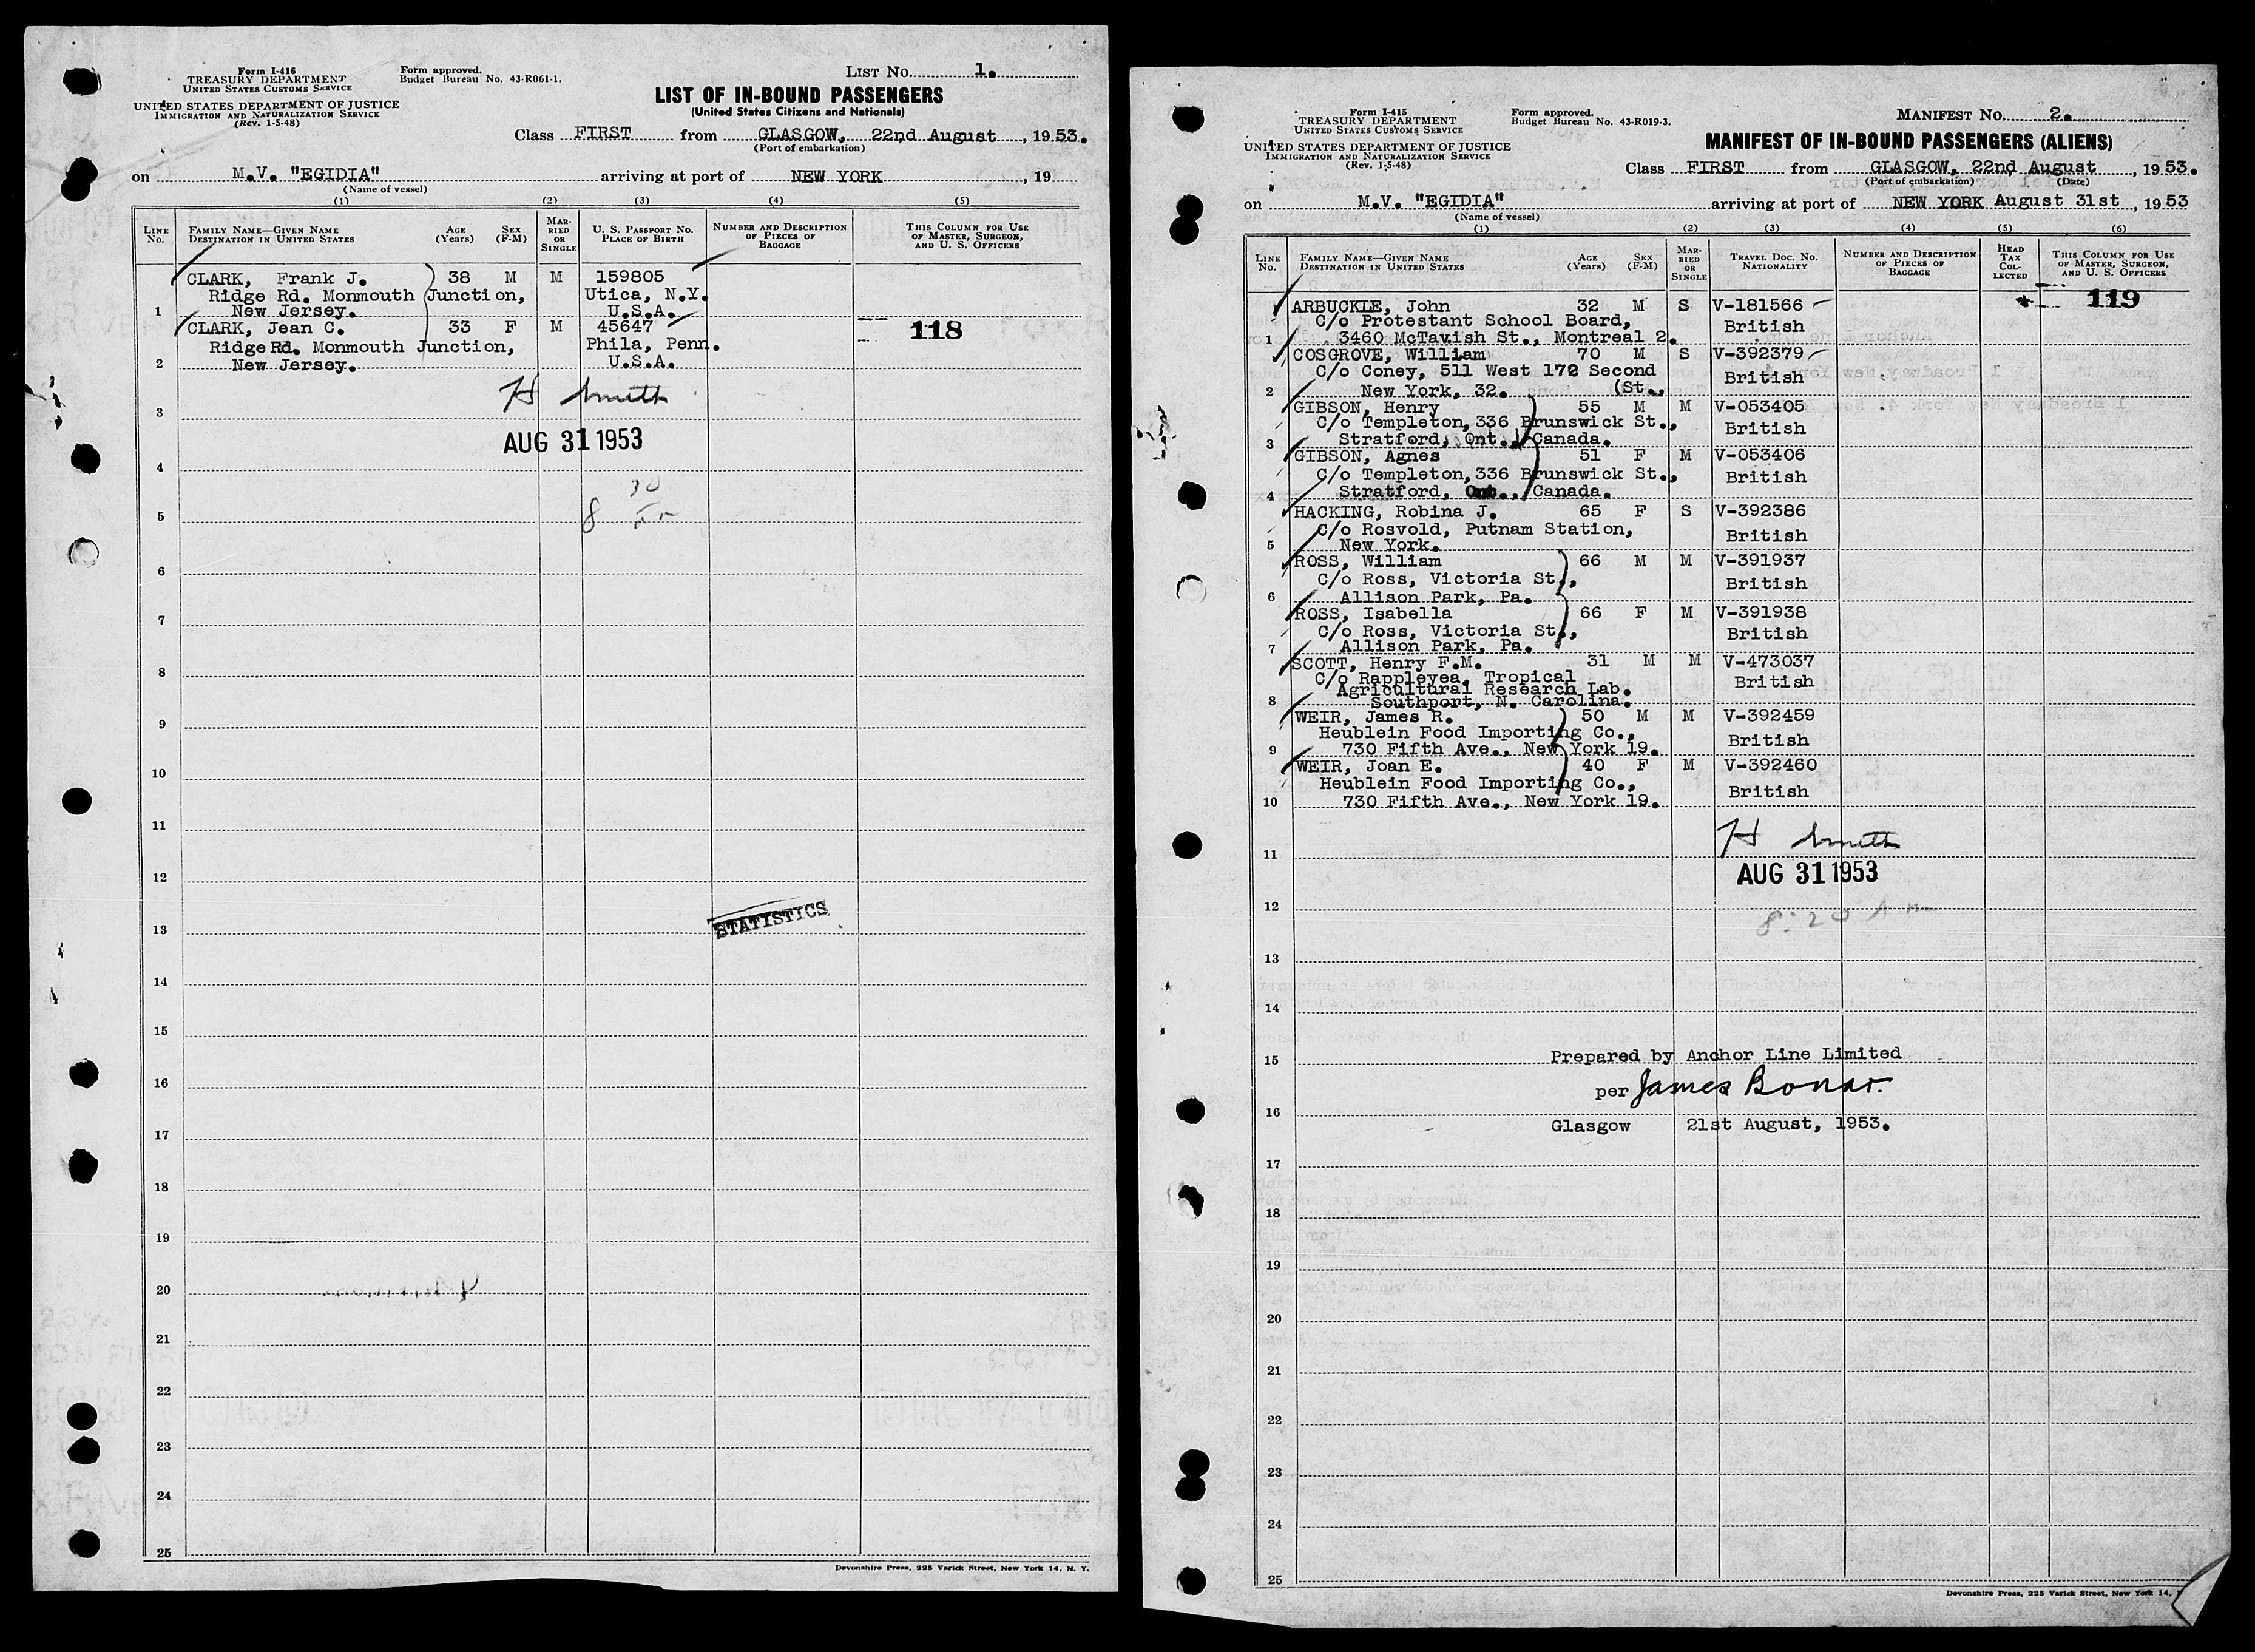 Form I-416
TREASURY DEPARTMENT
UNITED STATES CUSTOMS SERVICE
UNITED STATES DEPARTMENT OF JUSTICE
IMMIGRATION AND NATURALIZATION SERVICE
(Rev. 1-5-48)
Form approved.
Budget Bureau No. 43-R061-1.
LIST No. 1.
LIST OF IN-BOUND PASSENGERS
(United States Citizens and Nationals)
Class FIRST from GLASGOW, 22nd August, 1953.
(Port of embarkation)
on M.V. "EGIDIA" arriving at port of NEW YORK, 19
(Name of vessel)
(1) (2) (3) (4) (5)
LINE No. FAMILY NAME—GIVEN NAME DESTINATION IN UNITED STATES AGE (Years) SEX (F-M) MARRIED OR SINGLE U. S. PASSPORT NO. PLACE OF BIRTH NUMBER AND DESCRIPTION OF PIECES OF BAGGAGE THIS COLUMN FOR USE OF MASTER, SURGEON, AND U. S. OFFICERS
CLARK, Frank J. 38 M M 159805
Ridge Rd. Monmouth Junction, Utica, N.Y.
1 New Jersey. U.S.A.
CLARK, Jean C. 33 F M 45647 118
Ridge Rd. Monmouth Junction, Phila, Penn.
2 New Jersey. U.S.A.
H Smith
3
AUG 31 1953
4
8 30
5
6
7
8
9
10
11
12
STATISTICS
13
14
15
16
17
18
19
20
21
22
23
24
25
Devonshire Press, 225 Varick Street, New York 14, N. Y.
Form I-415
TREASURY DEPARTMENT
UNITED STATES CUSTOMS SERVICE
UNITED STATES DEPARTMENT OF JUSTICE
IMMIGRATION AND NATURALIZATION SERVICE
(Rev. 1-5-48)
Form approved.
Budget Bureau No. 43-R019-3.
MANIFEST No. 2.
MANIFEST OF IN-BOUND PASSENGERS (ALIENS)
Class FIRST from GLASGOW, 22nd August, 1953.
(Port of embarkation) (Date)
on M.V. "EGIDIA" arriving at port of NEW YORK August 31st, 1953
(Name of vessel)
(1) (2) (3) (4) (5) (6)
LINE No. FAMILY NAME—GIVEN NAME DESTINATION IN UNITED STATES AGE (Years) SEX (F-M) MARRIED OR SINGLE TRAVEL DOC. NO. NATIONALITY NUMBER AND DESCRIPTION OF PIECES OF BAGGAGE HEAD TAX COLLECTED THIS COLUMN FOR USE OF MASTER, SURGEON, AND U. S. OFFICERS
ARBUCKLE, John 32 M S V-181566 119
C/o Protestant School Board, British
1 3460 McTavish St., Montreal 2.
COSGROVE, William 70 M S V-392379
C/o Coney, 511 West 172 Second British
2 New York, 32. (St.,
GIBSON, Henry 55 M M V-053405
C/o Templeton, 336 Brunswick St., British
3 Stratford, Ont., Canada.
GIBSON, Agnes 51 F M V-053406
C/o Templeton, 336 Brunswick St., British
4 Stratford, Ont., Canada.
HACKING, Robina J. 65 F S V-392386
C/o Rosvold, Putnam Station, British
5 New York.
ROSS, William 66 M M V-391937
C/o Ross, Victoria St., British
6 Allison Park, Pa.
ROSS, Isabella 66 F M V-391938
C/o Ross, Victoria St., British
7 Allison Park, Pa.
SCOTT, Henry F.M. 31 M M V-473037
C/o Rappleyea, Tropical British
Agricultural Research Lab.
8 Southport, N. Carolina.
WEIR, James R. 50 M M V-392459
Heublein Food Importing Co., British
9 730 Fifth Ave., New York 19.
WEIR, Joan E. 40 F M V-392460
Heublein Food Importing Co., British
10 730 Fifth Ave., New York 19.
H Smith
11
AUG 31 1953
12
8:20 AM
13
14
15 Prepared by Anchor Line Limited
per James Bonar.
16
Glasgow 21st August, 1953.
17
18
19
20
21
22
23
24
25
Devonshire Press, 225 Varick Street, New York 14,